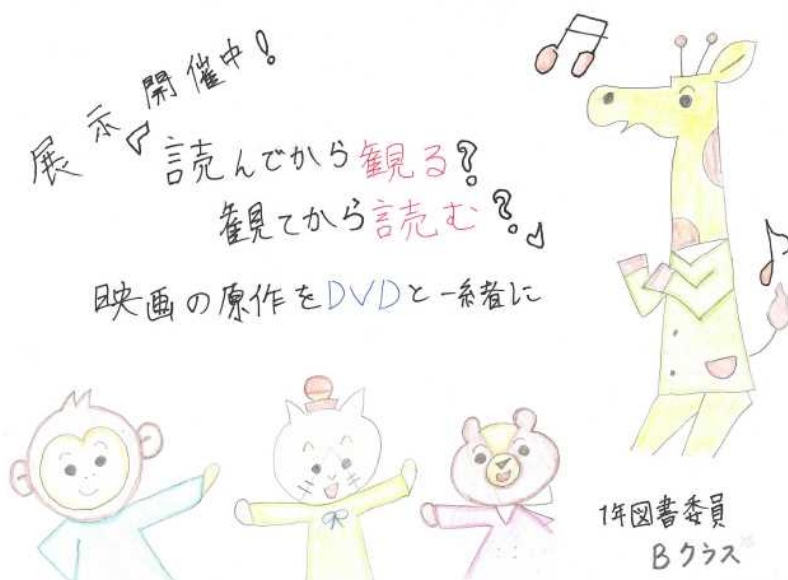 展示開催中!
『読んでから観る?
観てから読む?』
映画の原作をDVDと一緒に
1年図書委員
Bクラス